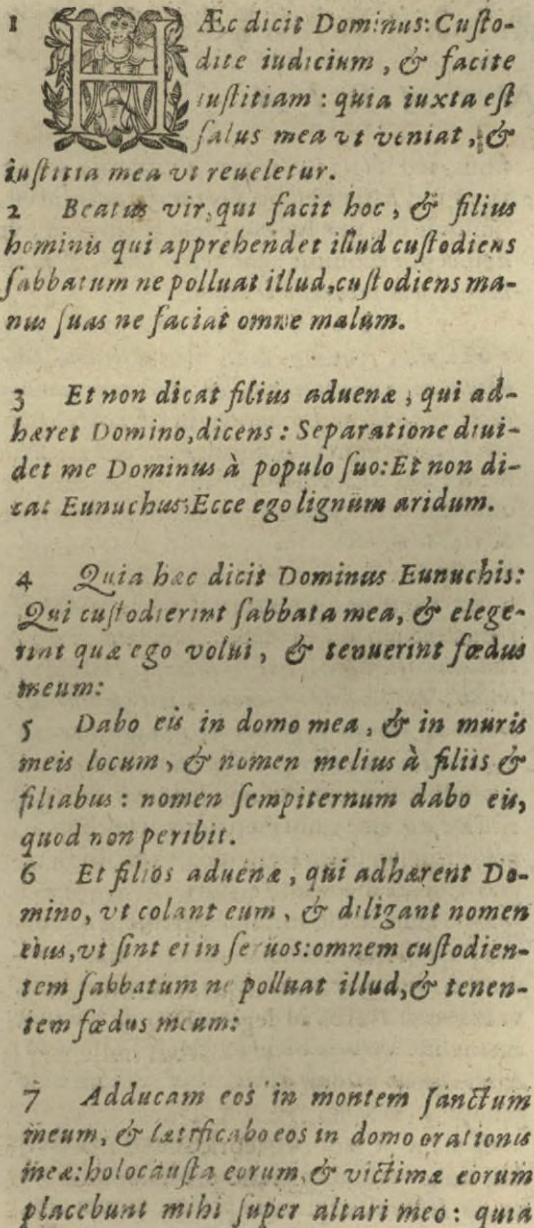 1 HÆc dicit Dominus: Custo-
dite iudicium, & facite
iustitiam: quia iuxta est
salus mea vt veniat, &
iustitia mea vt reueletur.
2 Beatus vir, qui facit hoc, & filius
hominis qui apprehendet illud custodiens
sabbatum ne polluat illud, custodiens ma-
nus suas ne faciat omne malum.
3 Et non dicat filius aduenæ, qui ad-
hæret Domino, dicens: Separatione diui-
det me Dominus à populo suo: Et non di-
cat Eunuchus: Ecce ego lignum aridum.
4 Quia hæc dicit Dominus Eunuchis:
Qui custodierint sabbata mea, & elege-
rint quæ ego volui, & tenuerint fœdus
meum:
5 Dabo eis in domo mea, & in muris
meis locum, & nomen melius à filiis &
filiabus: nomen sempiternum dabo eis,
quod non peribit.
6 Et filios aduenæ, qui adhærent Do-
mino, vt colant eum, & diligant nomen
eius, vt sint ei in seruos: omnem custodien-
tem sabbatum ne polluat illud, & tenen-
tem fœdus meum:
7 Adducam eos in montem sanctum
meum, & lætificabo eos in domo orationis
meæ: holocausta eorum, & victimæ eorum
placebunt mihi super altari meo: quia